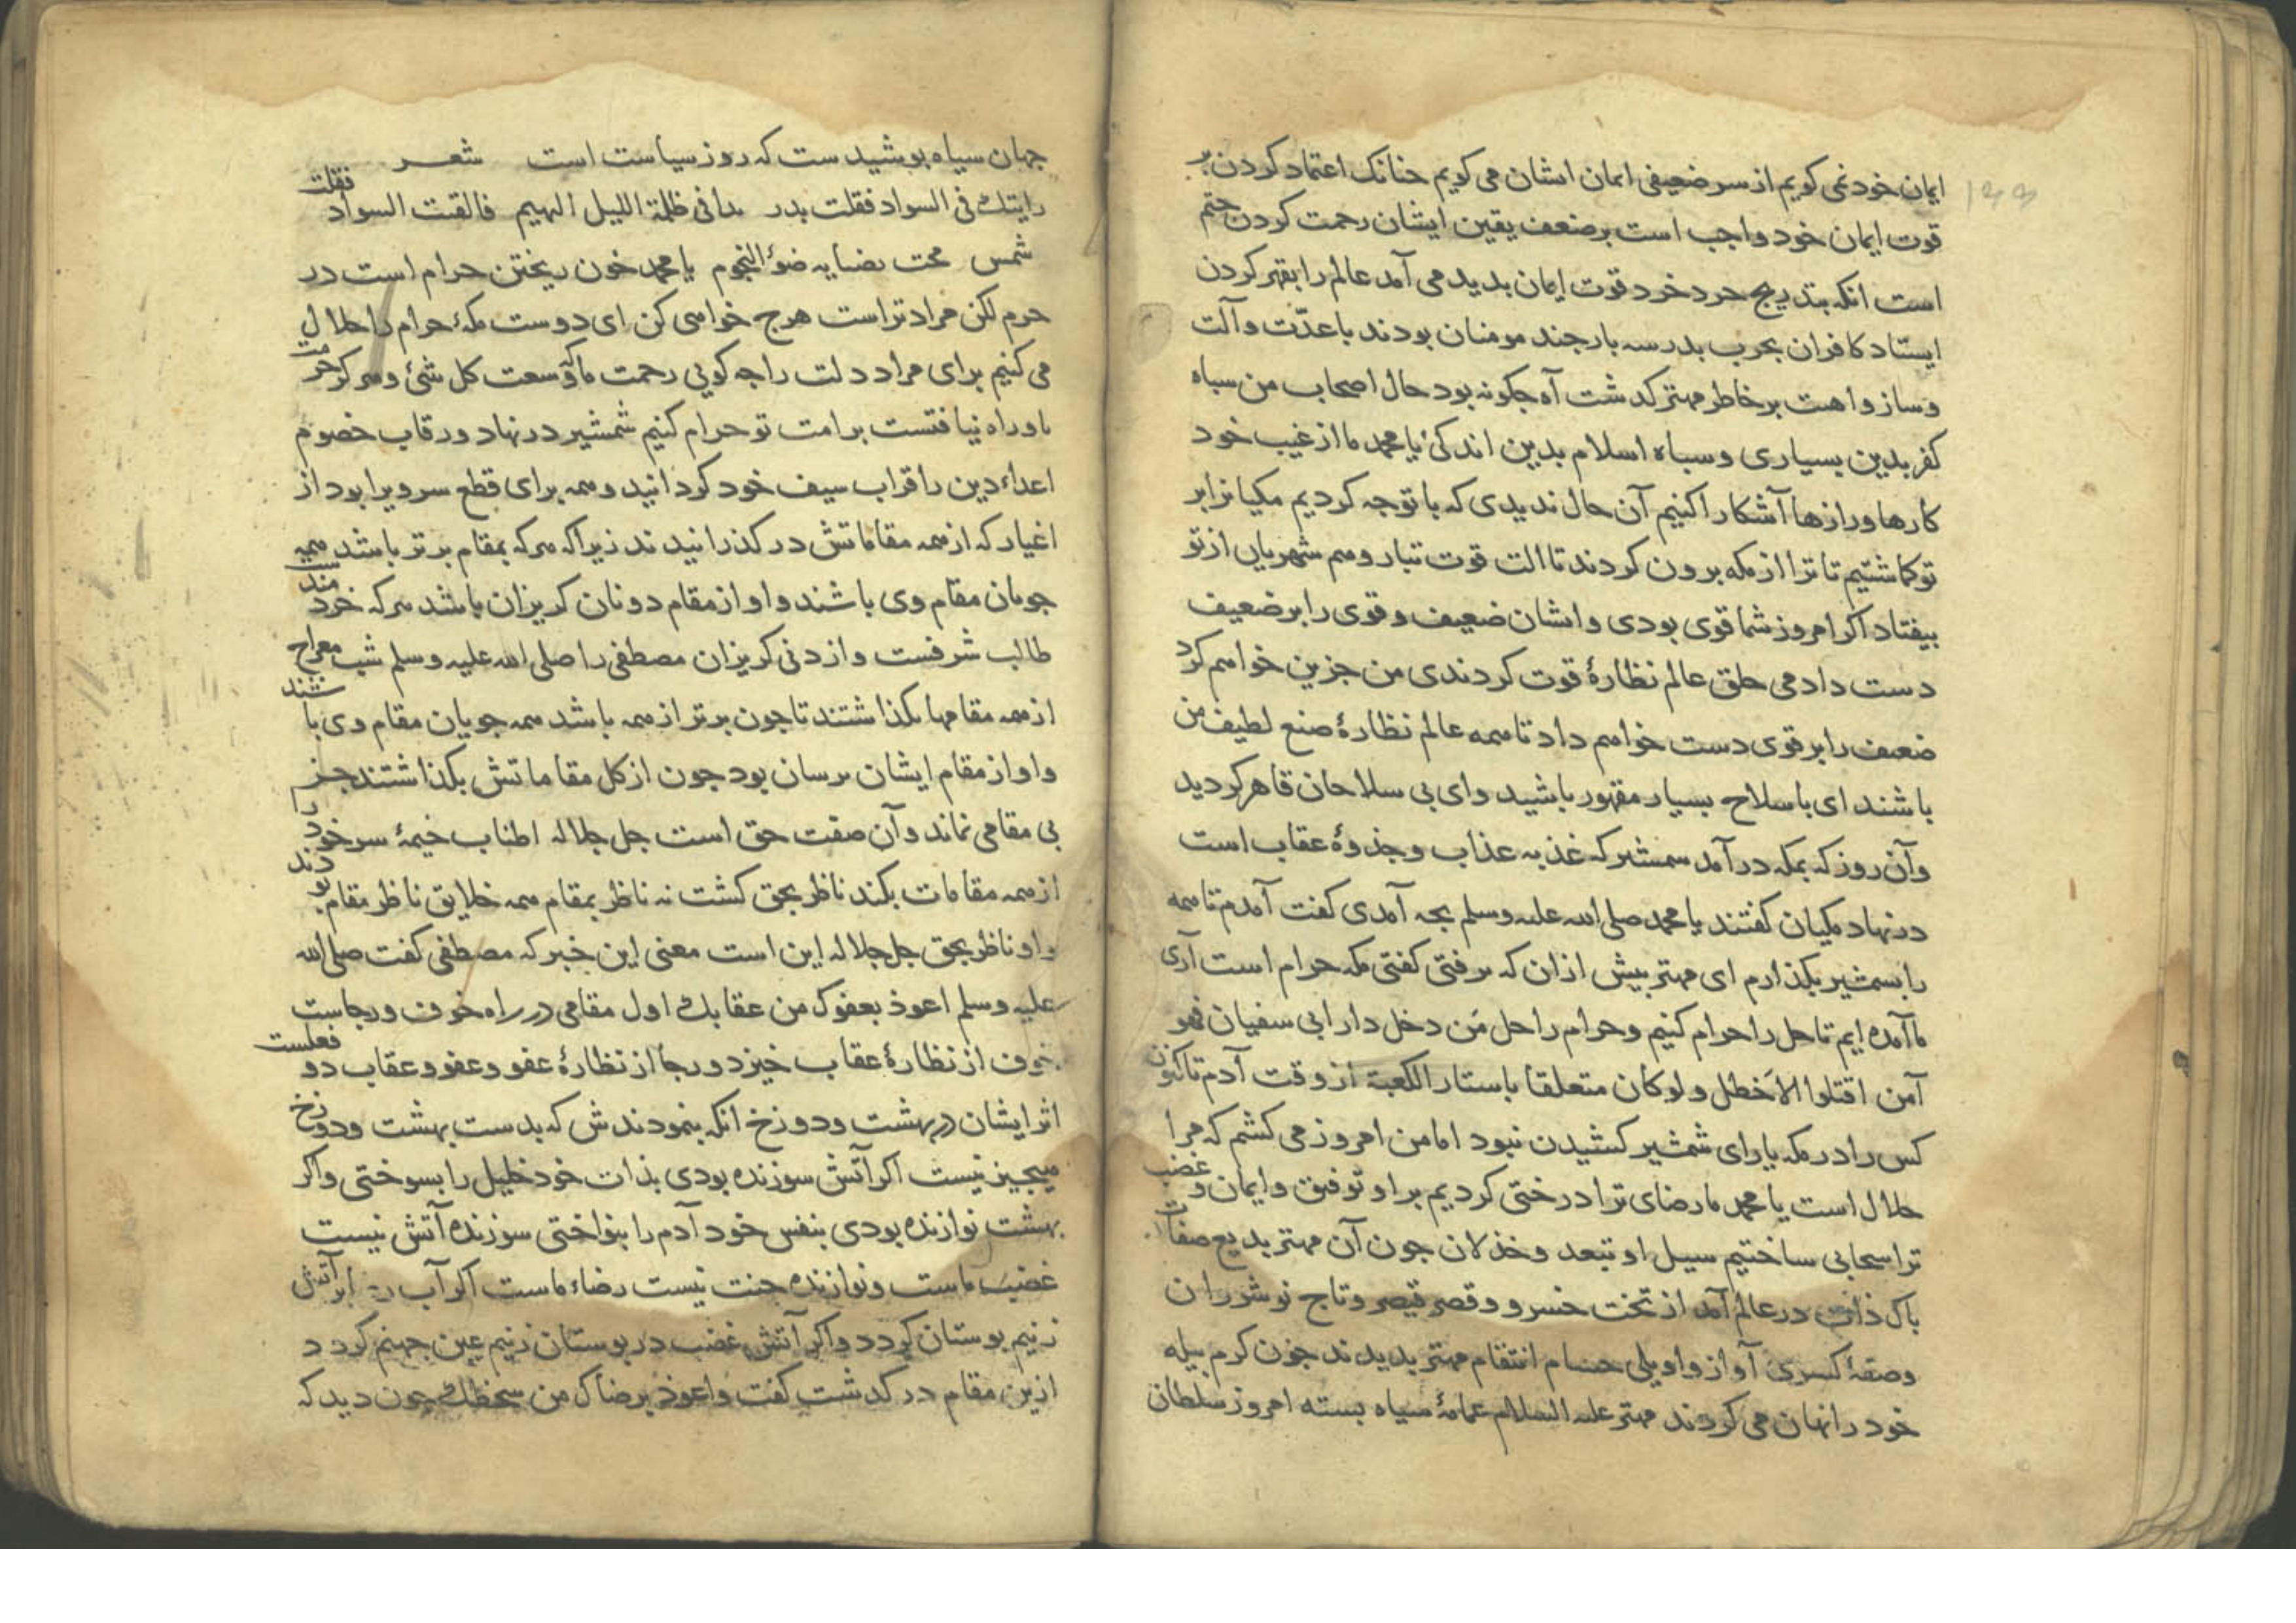 ایمان خود نمی کویم از سر ضعیفی ایمان ایشان می کویم جنانک اعتماد کردن بر
۱۴۴
قوت ایمان خود واجب است بر ضعف یقین ایشان رحمت کردن حتم
است انکه بتدریج خرد خرد قوت ایمان بدید می آمد عالم را بقهر کردن
ایستاد کافران بحرب بدر سه بار جند مومنان بودند با عدّت و آلت
و ساز و اهبت بر خاطر مهتر کدشت آه جکونه بود حال اصحاب من سباه
کفر بدین بسیاری و سباه اسلام بدین اندکی یا محمد ما از غیب خود
کارها و رازها آشکارا کنیم آن حال ندیدی که با تو جه کردیم مکیانرا بر
تو کماشتیم تا ترا از مکه برون کردند تا الت قوت تبار و هم شهریان از تو
بیفتاد اکر امروز شما قوی بودی و ایشان ضعیف و قوی را بر ضعیف
دست دادمی خلق عالم نظارهٔ قوت کردندی من جزین خواهم کرد
ضعیف را بر قوی دست خواهم داد تا همه عالم نظارهٔ صنع لطیف من
باشند ای با سلاح بسیار مقهور باشید و ای بی سلاحان قاهر کردید
و آن روز که بمکه در آمد شمشیر که عذبه عذاب و جذوهٔ عقاب است
در نهاد مکیان کفتند یا محمد صلی الله علیه وسلم بجه آمدی کفت آمدم تا همه
را بشمشیر بکذارم ای مهتر بیش ازان که برفتی کفتی مکه حرام است آری
ما آمده ایم تا حل را حرام کنیم و حرام را حل مَن دخل دار ابی سفیان فهو
آمن اقتلوا الاخطل ولو کان متعلقا باستار الکعبة از وقت آدم تاکنون
کس را در مکه یارای شمشیر کشیدن نبود اما من امروز می کشم که مرا
حلال است یا محمد ما رضای ترا درختی کردیم بر او توفیق و ایمان و غضب
ترا سحابی ساختیم سیل او تبعد و خذلان جون آن مهتر بدیع صفات
باک ذات در عالم آمد از تخت خسرو و قصر قیصر و تاج نوشروان
و صفهٔ کسری آواز واویلی حسام انتقام مهتر بدیدند جون کرم بیله
خود را نهان می کردند مهتر علیه السلام عمامهٔ سیاه بسته امروز سلطان
جهان سیاه بوشیدست که روز سیاست است شعر
رایتك فی السواد فقلت بدر بدا فی ظلمة اللیل البهیم فالقیت السواد فقلت
شمس محت بضیایه ضؤ النجوم یا محمد خون ریختن حرام است در
حرم لکن مراد تراست هرج خواهی کن ای دوست مکهٔ حرام را حلال
می کنیم برای مراد دلت را جه کویی رحمت ما که وسعت کل شیٔ و هرکز حرمت
ما و راه نیافتست بر امت تو حرام کنیم شمشیر در نهاد و رقاب خصوم
اعداء دین را قراب سیف خود کردانید و همه برای قطع سر ویرا بود از
اغیار که از همه مقاماتش در کذرانیدند زیرا که هر که بمقام برتر باشد همه
جویان مقام وی باشند و او از مقام دونان کریزان باشد هر که خردمند
طالب شرفست و از دنی کریزان مصطفی را صلی الله علیه وسلم شب معراج
از همه مقامها بکذاشتند تا جون برتر از همه باشد همه جویان مقام وی باشند
و او از مقام ایشان برسان بود جون از کل مقاماتش بکذاشتند جز
بی مقامی نماند و آن صفت حق است جل جلاله اطناب خیمهٔ سر خود را
از همه مقامات بکند ناظر بحق کشت نه ناظر بمقام همه خلایق ناظر مقام بودند
و او ناظر بحق جل جلاله این است معنی این خبر که مصطفی کفت صلی الله
علیه وسلم اعوذ بعفوک من عقابك اول مقامی در راه خوف و رجاست
خوف از نظارهٔ عقاب خیزد و رجا از نظارهٔ عفو و عفو و عقاب دو فعلست
اثر ایشان در بهشت و دوزخ انکه بنمودندش که بدست بهشت و دوزخ
هیجیز نیست اکر آتش سوزنده بودی بذات خود خلیل را بسوختی و اکر
بهشت نوازنده بودی بنفس خود آدم را بنواختی سوزنده آتش نیست
غضب ماست و نوازنده جنت نیست رضاء ماست اکر آب بر آتش
زنیم بوستان کردد و اکر آتش غضب در بوستان زنیم عین جهنم کردد
ازین مقام در کدشت کفت و اعوذ برضاک من سخطك جون دید که